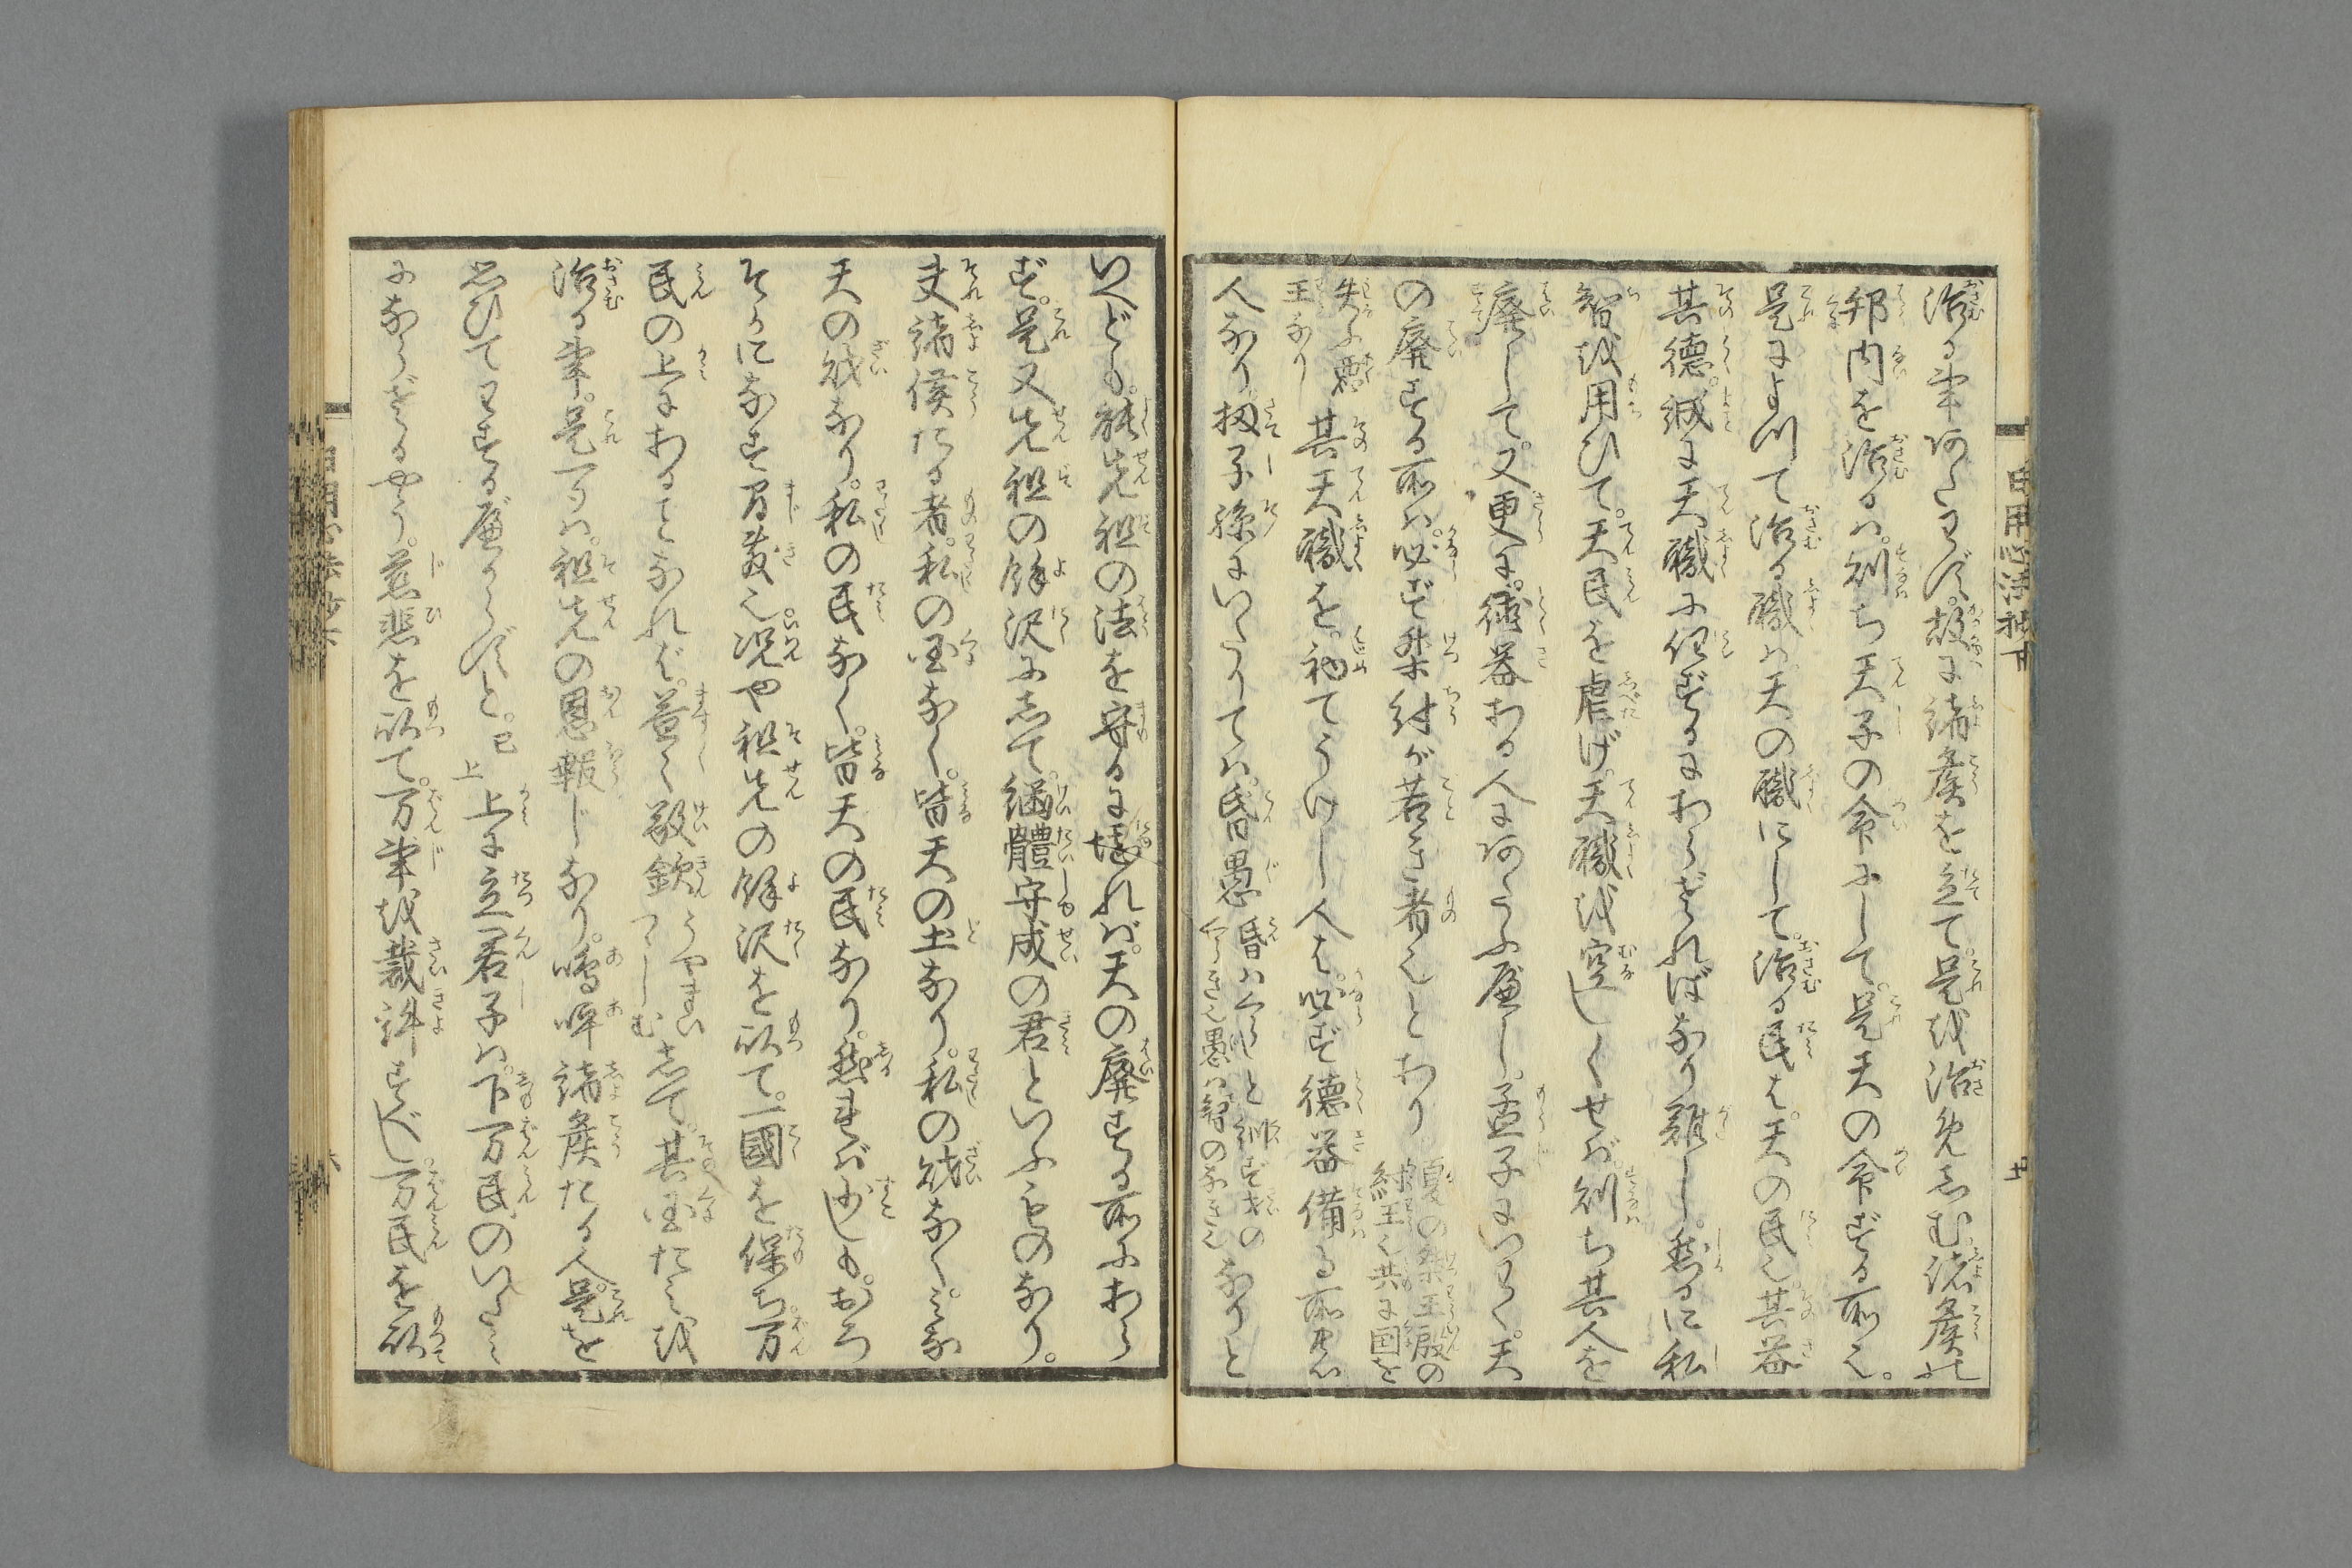 治る事能はず。故に諸矦を立て。是を治めしむ。諸矦の
邦内を治るハ。則ち天子の命にして。是天の命ずる所也。
是によつて治る職ハ。天の職にして。治る民も。天の民也。其器
其徳。誠に天職に任ずるにあらざれば なり難し。然るに私
智を用ひて。天民を虐げ。天職を空しくせバ。則ち其人を
廃して。又更に。徳器ある人に
の廃する所ハ。必ず桀紂が若き者也とあり
夏の桀王殷の
紂王也共に国を
失ふ悪
王なり
其天職を初てうけし人も。必ず徳器備る所
人なり。扨子孫にいたりてハ。昏愚
昏ハくらしと訓ず才の
くらき也愚ハ智のなき也
なりと
いへども。能先祖の法を守るに堪れバ。天の廃する所にあら
ず。是又先祖の餘沢にして。継體守成の君といふものなり。
夫諸侯たる者。私の国なく。皆天の土なり。私の財なく。ミな
天の財なり。私の民なく。皆天の民なり。然れバ少しも。おろ
そかになすまじき也。况や祖先の餘沢を以て。一國を保ち。万
民の上にあることなれバ。益〻敬欽
うやまい
つゝしむ
して。其国たミを
治る事。是一つハ。祖先の恩報じなり。嗚呼諸矦たる人。是を
思ひてせずる べからずと。
已
上
上に立君子ハ。下万民のいたミ
にならざるやう。慈悲を以て。万事を裁許すべし。万民を以
日用心法抄下